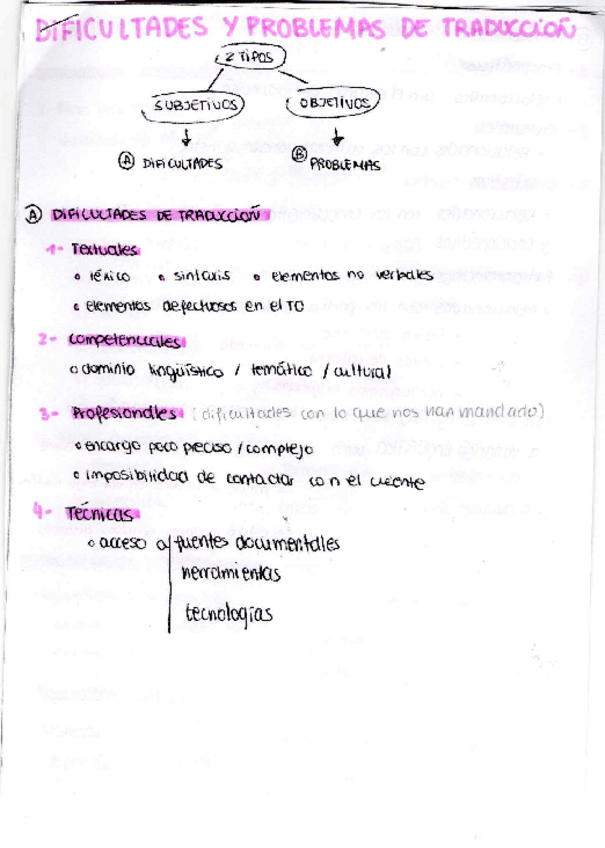 DIFICULTADES Y PROBLEMAS DE TRADUCCIOÑ
2 TIPOS
SUBJETIVOS OBJETIVOS
A DIFICULTADES B PROBLEMAS
A DIFICULTADES DE TRADUCCIOÑ
1- Textuales
léxico sintaxis elementos no verbales
elementos defectuosos en el TO
2- Competenciales
dominio lingüístico / temático / cultural
3- Profesionales (dificultades con lo que nos han mandado)
encargo poco preciso / complejo
imposibilidad de contactar con el cliente
4- Técnicas
acceso a fuentes documentales
herramientas
tecnologías